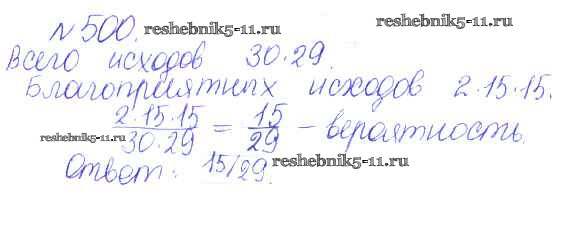 №500. reshebnik5-11.ru reshebnik5-11.ru
Всего исходов 30·29.
Благоприятных исходов 2·15·15.
2·15·15/30·29 = 15/29 – вероятность.
reshebnik5-11.ru
Ответ: 15/29. reshebnik5-11.ru